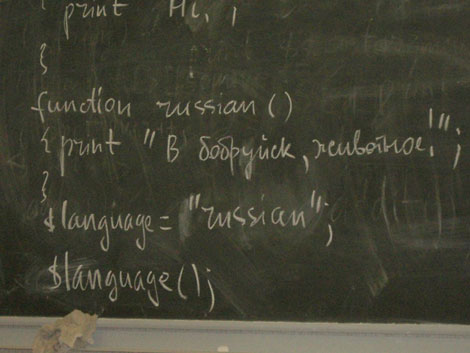 { print "Hi,
}
function russian ()
{ print "В бобруйск, животное!";
}
$language = "russian";
$language();